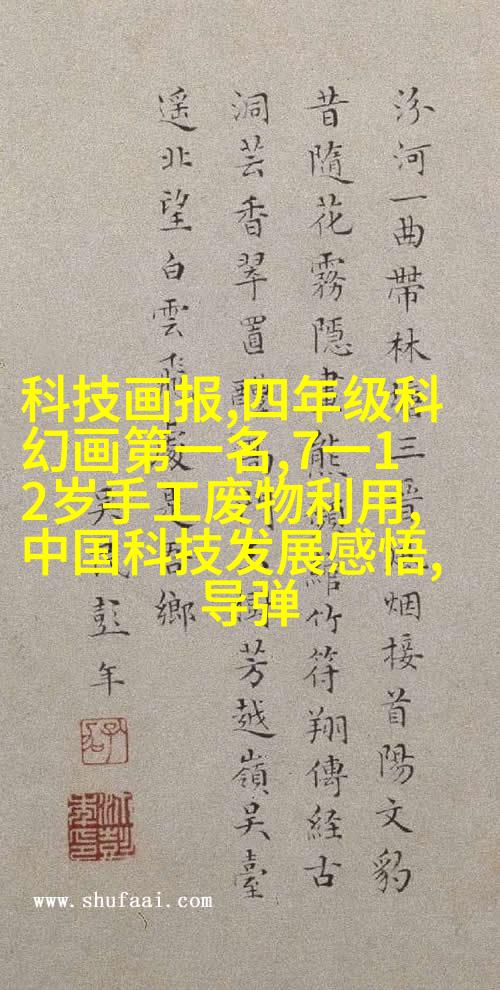 科技画报,四年级科
幻画第一名,7一1
2岁手工废物利用,
中国科技发展感悟,
导弹
汾河一曲帶林三晉烟接首陽文豹
昔隨花霧隱畫熊綰竹符翔傳經古
洞芸香翠置樹芳越嶺吳臺
遥北望白雲飛處是吾鄉
吳彭年
www.shufaai.com